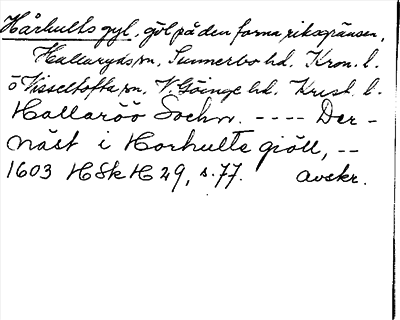 Hårhults gyl, göl på den forna riksgränsen,
Hallaryds sn, Sunnerbo hd. Kron. l.
o Visseltofta sn, V. Göinge hd. Krist. l.
Hallaröö Sochn. ---- Der-
näst i Horhults giöll, --
1603 HSkH 29, s. 77. avskr.